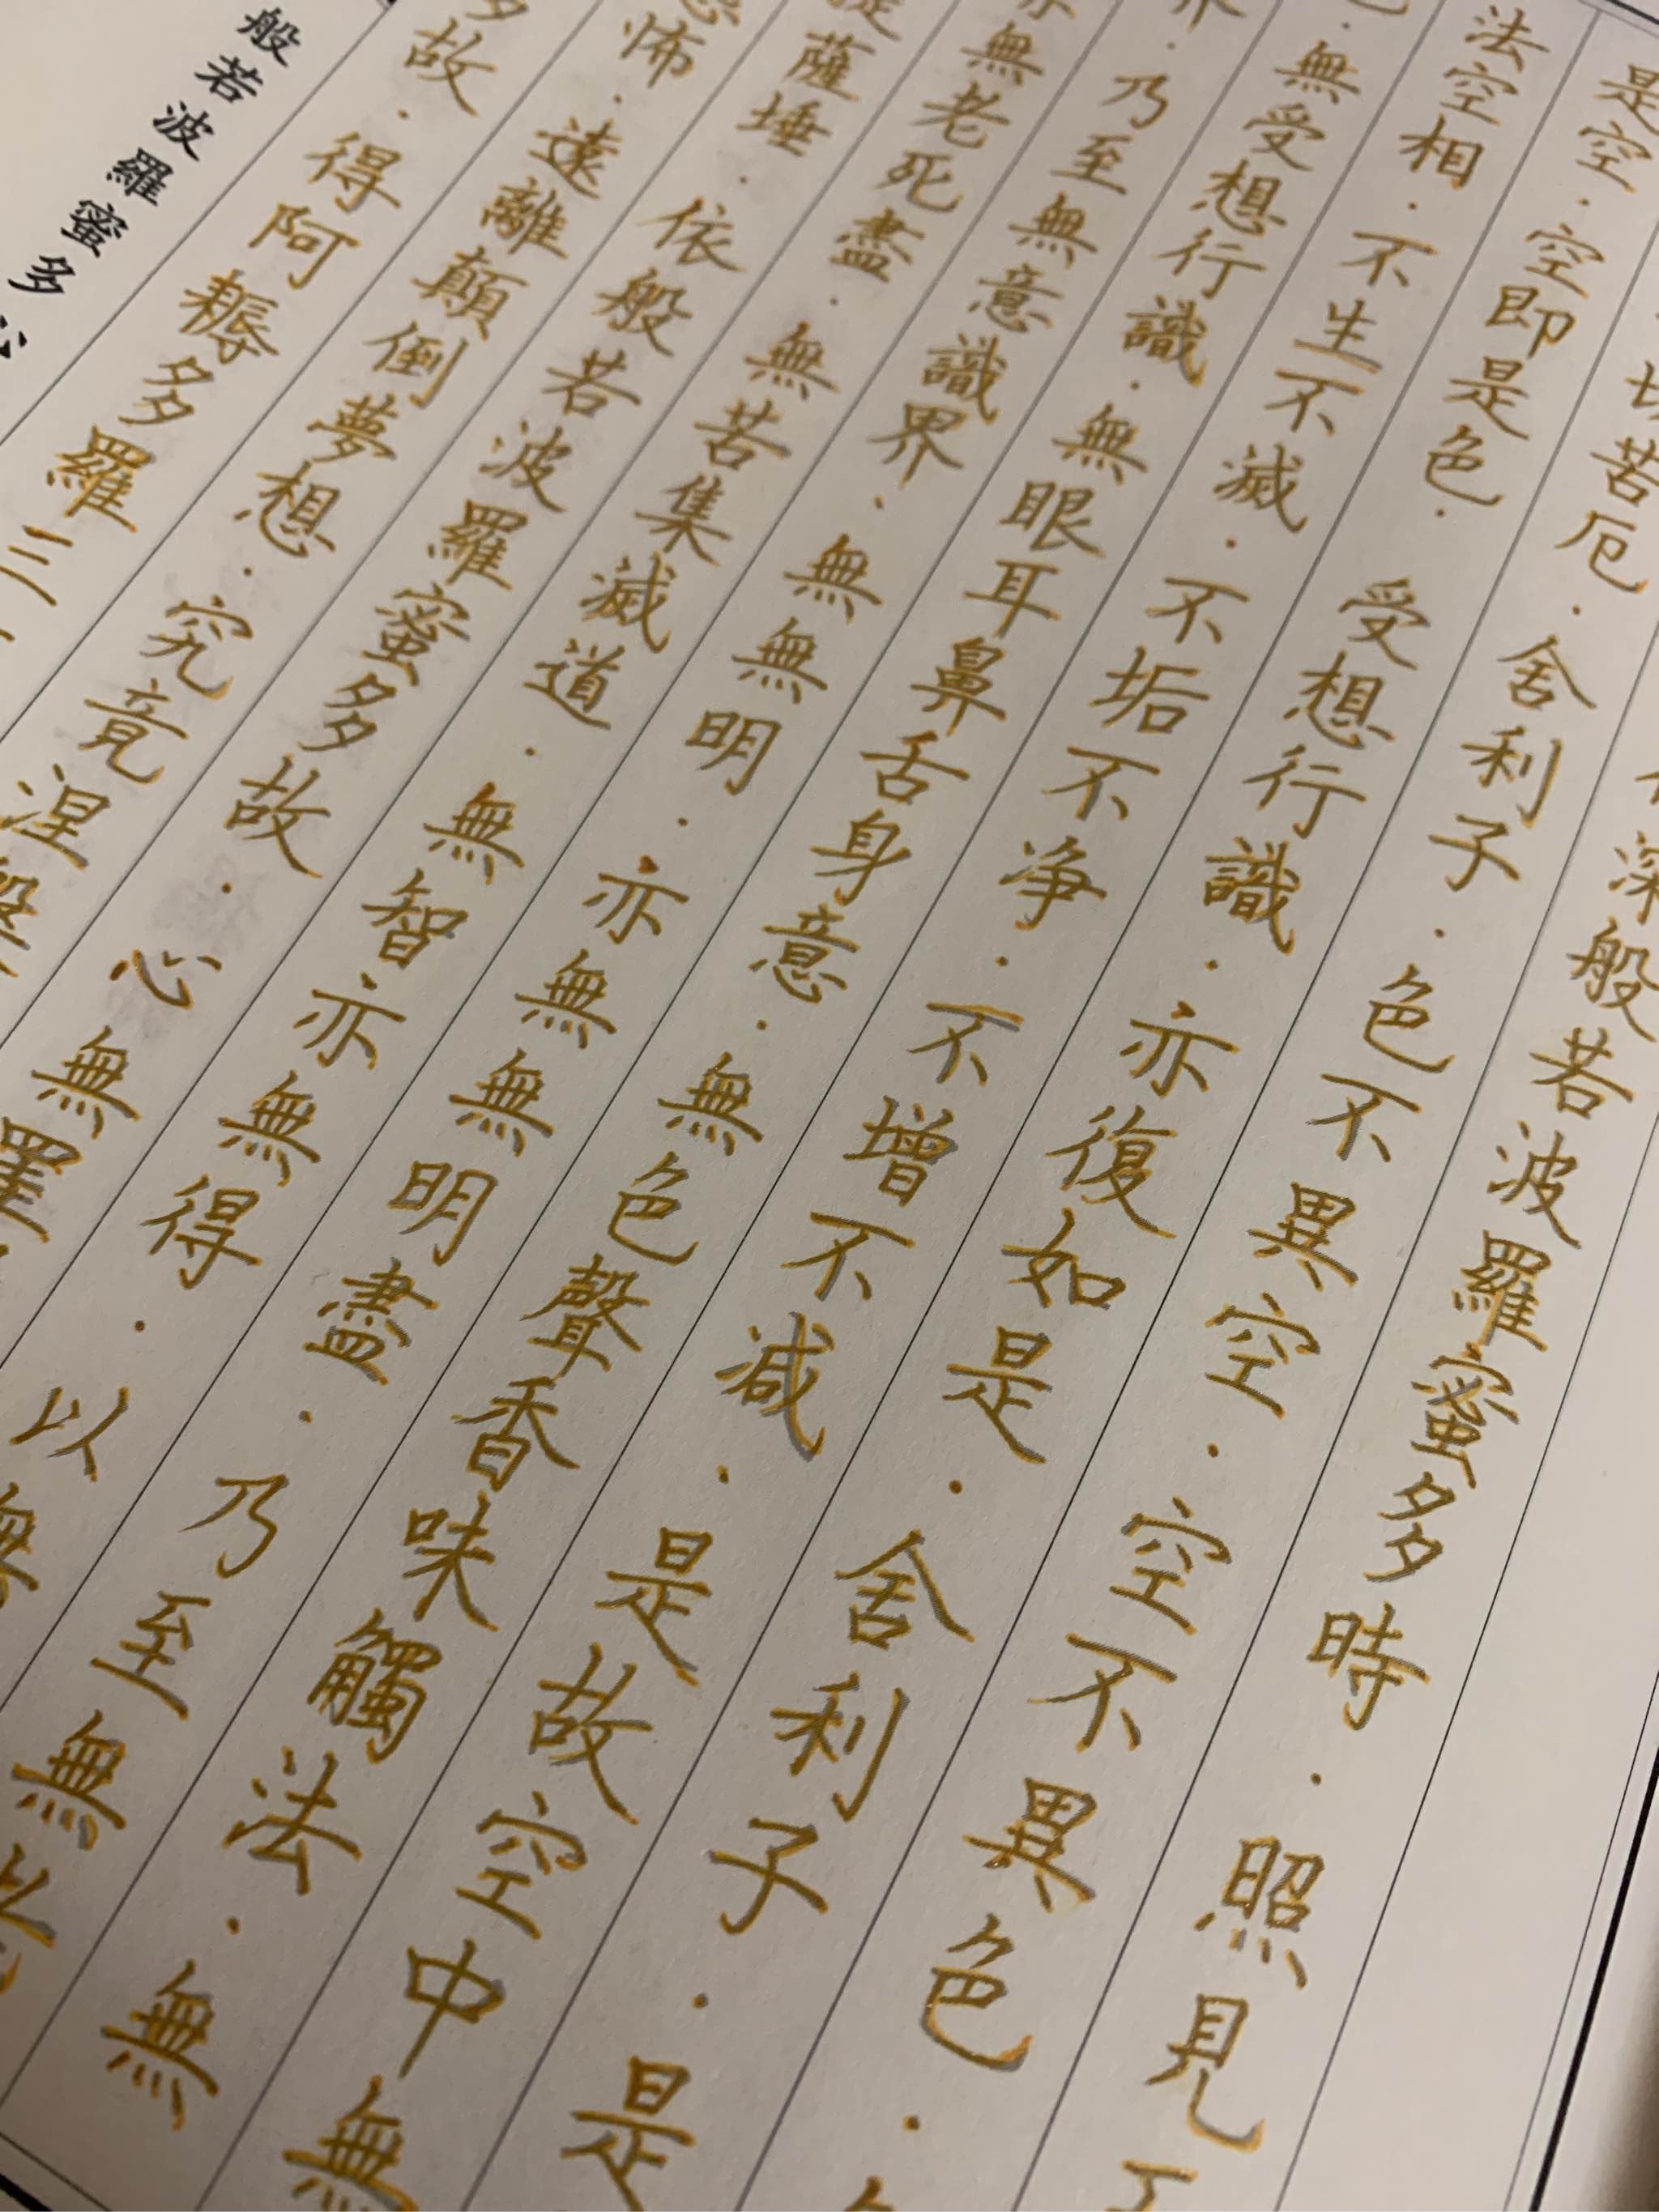 深般若波羅蜜多時．照見
切苦厄．舍利子．色不異空．空不異色．
是空．空即是色．受想行識．亦復如是．舍利子．是
法空相．不生不滅．不垢不净．不增不减．是故空中無
．無受想行識．無眼耳鼻舌身意．無色聲香味觸法．無
界．乃至無意識界．無無明．亦無無明盡．乃至無老
亦無老死盡．無苦集滅道．無智亦無得．以無
提薩埵．依般若波羅蜜多故．心無罣
恐怖．遠離顛倒夢想．究竟涅槃
多故．得阿耨多羅三
般若波羅蜜多心